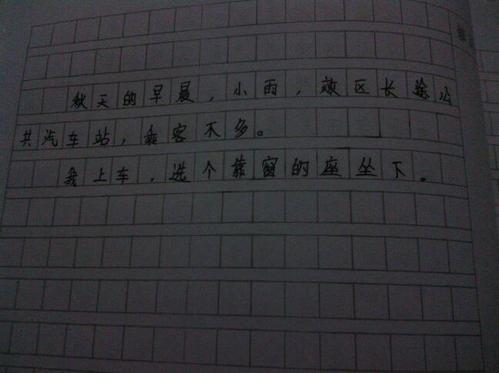 秋天的早晨，小雨，郊区长途公
共汽车站，乘客不多。
我上车，选个靠窗的座坐下。